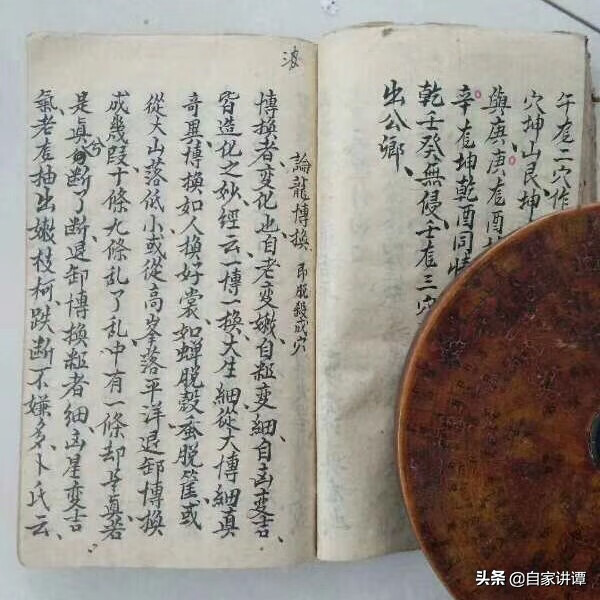 午庬二穴作
穴坤山艮坤
與庚庚庬酉
辛庬坤乾酉同情
乾壬癸無侵壬庬三穴
出公卿
波
論龍博換 即脫殺成穴
博換者變化也自老變嫩自粗變細自凶變吉
皆造化之妙經云一博一換大生細從大博細真
奇異博換如人換好裳如蟬脫殼蚕脫筐或
從大山落低小或從高峯落平洋退卸博換
成幾段十條九條乱了乱中有一條却是真若
是真分断了断退卸博換粗者細凶星變吉
氣老庬抽出嫩枝柯跌断不嫌多卜氏云
头条 @自家讲谭